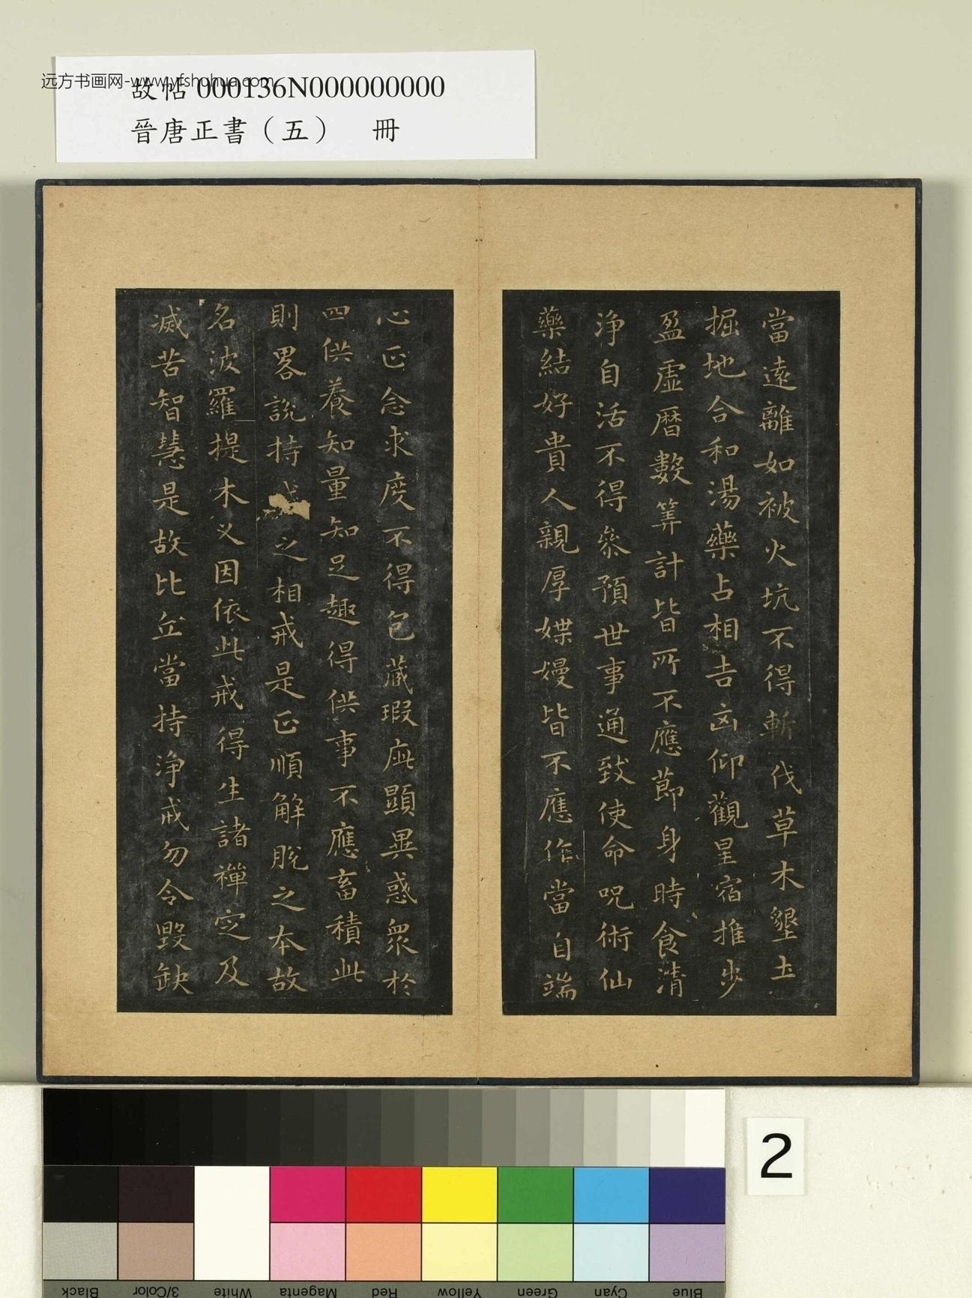 远方书画网-www.yfshuhua.com
故帖 000136N000000000
晉唐正書（五） 冊
當遠離如被火坑不得斬伐草木墾土
掘地合和湯藥占相吉凶仰觀星宿推步
盈虛曆數筭計皆所不應節身時食清
淨自活不得參預世事通致使命呪術仙
藥結好貴人親厚媟嫚皆不應作當自端
心正念求度不得包藏瑕疵顯異惑眾於
四供養知量知足趣得供事不應畜積此
則畧說持之相戒是正順解脫之本故
名波羅提木叉因依此戒得生諸禪定及
滅苦智慧是故比丘當持淨戒勿令毀缺
2
Black 3/Color White Magenta Red Yellow Green Cyan Blue